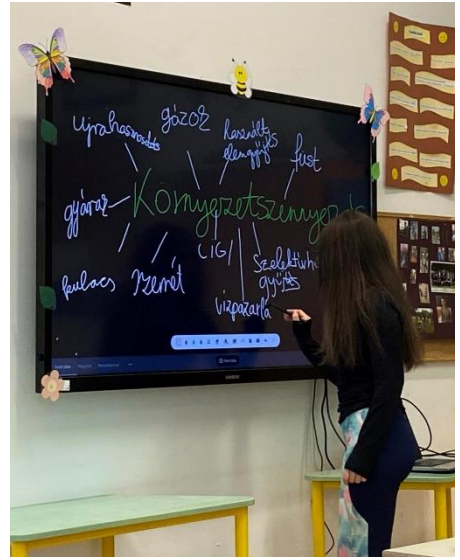 újrahasznosítás
gázok
használt
elemgyűjtés
füst
gyárak
Környezetszennyezés
kulacs
szemét
CIG/
Szelektívh
gyűjtés
vízpazarlá